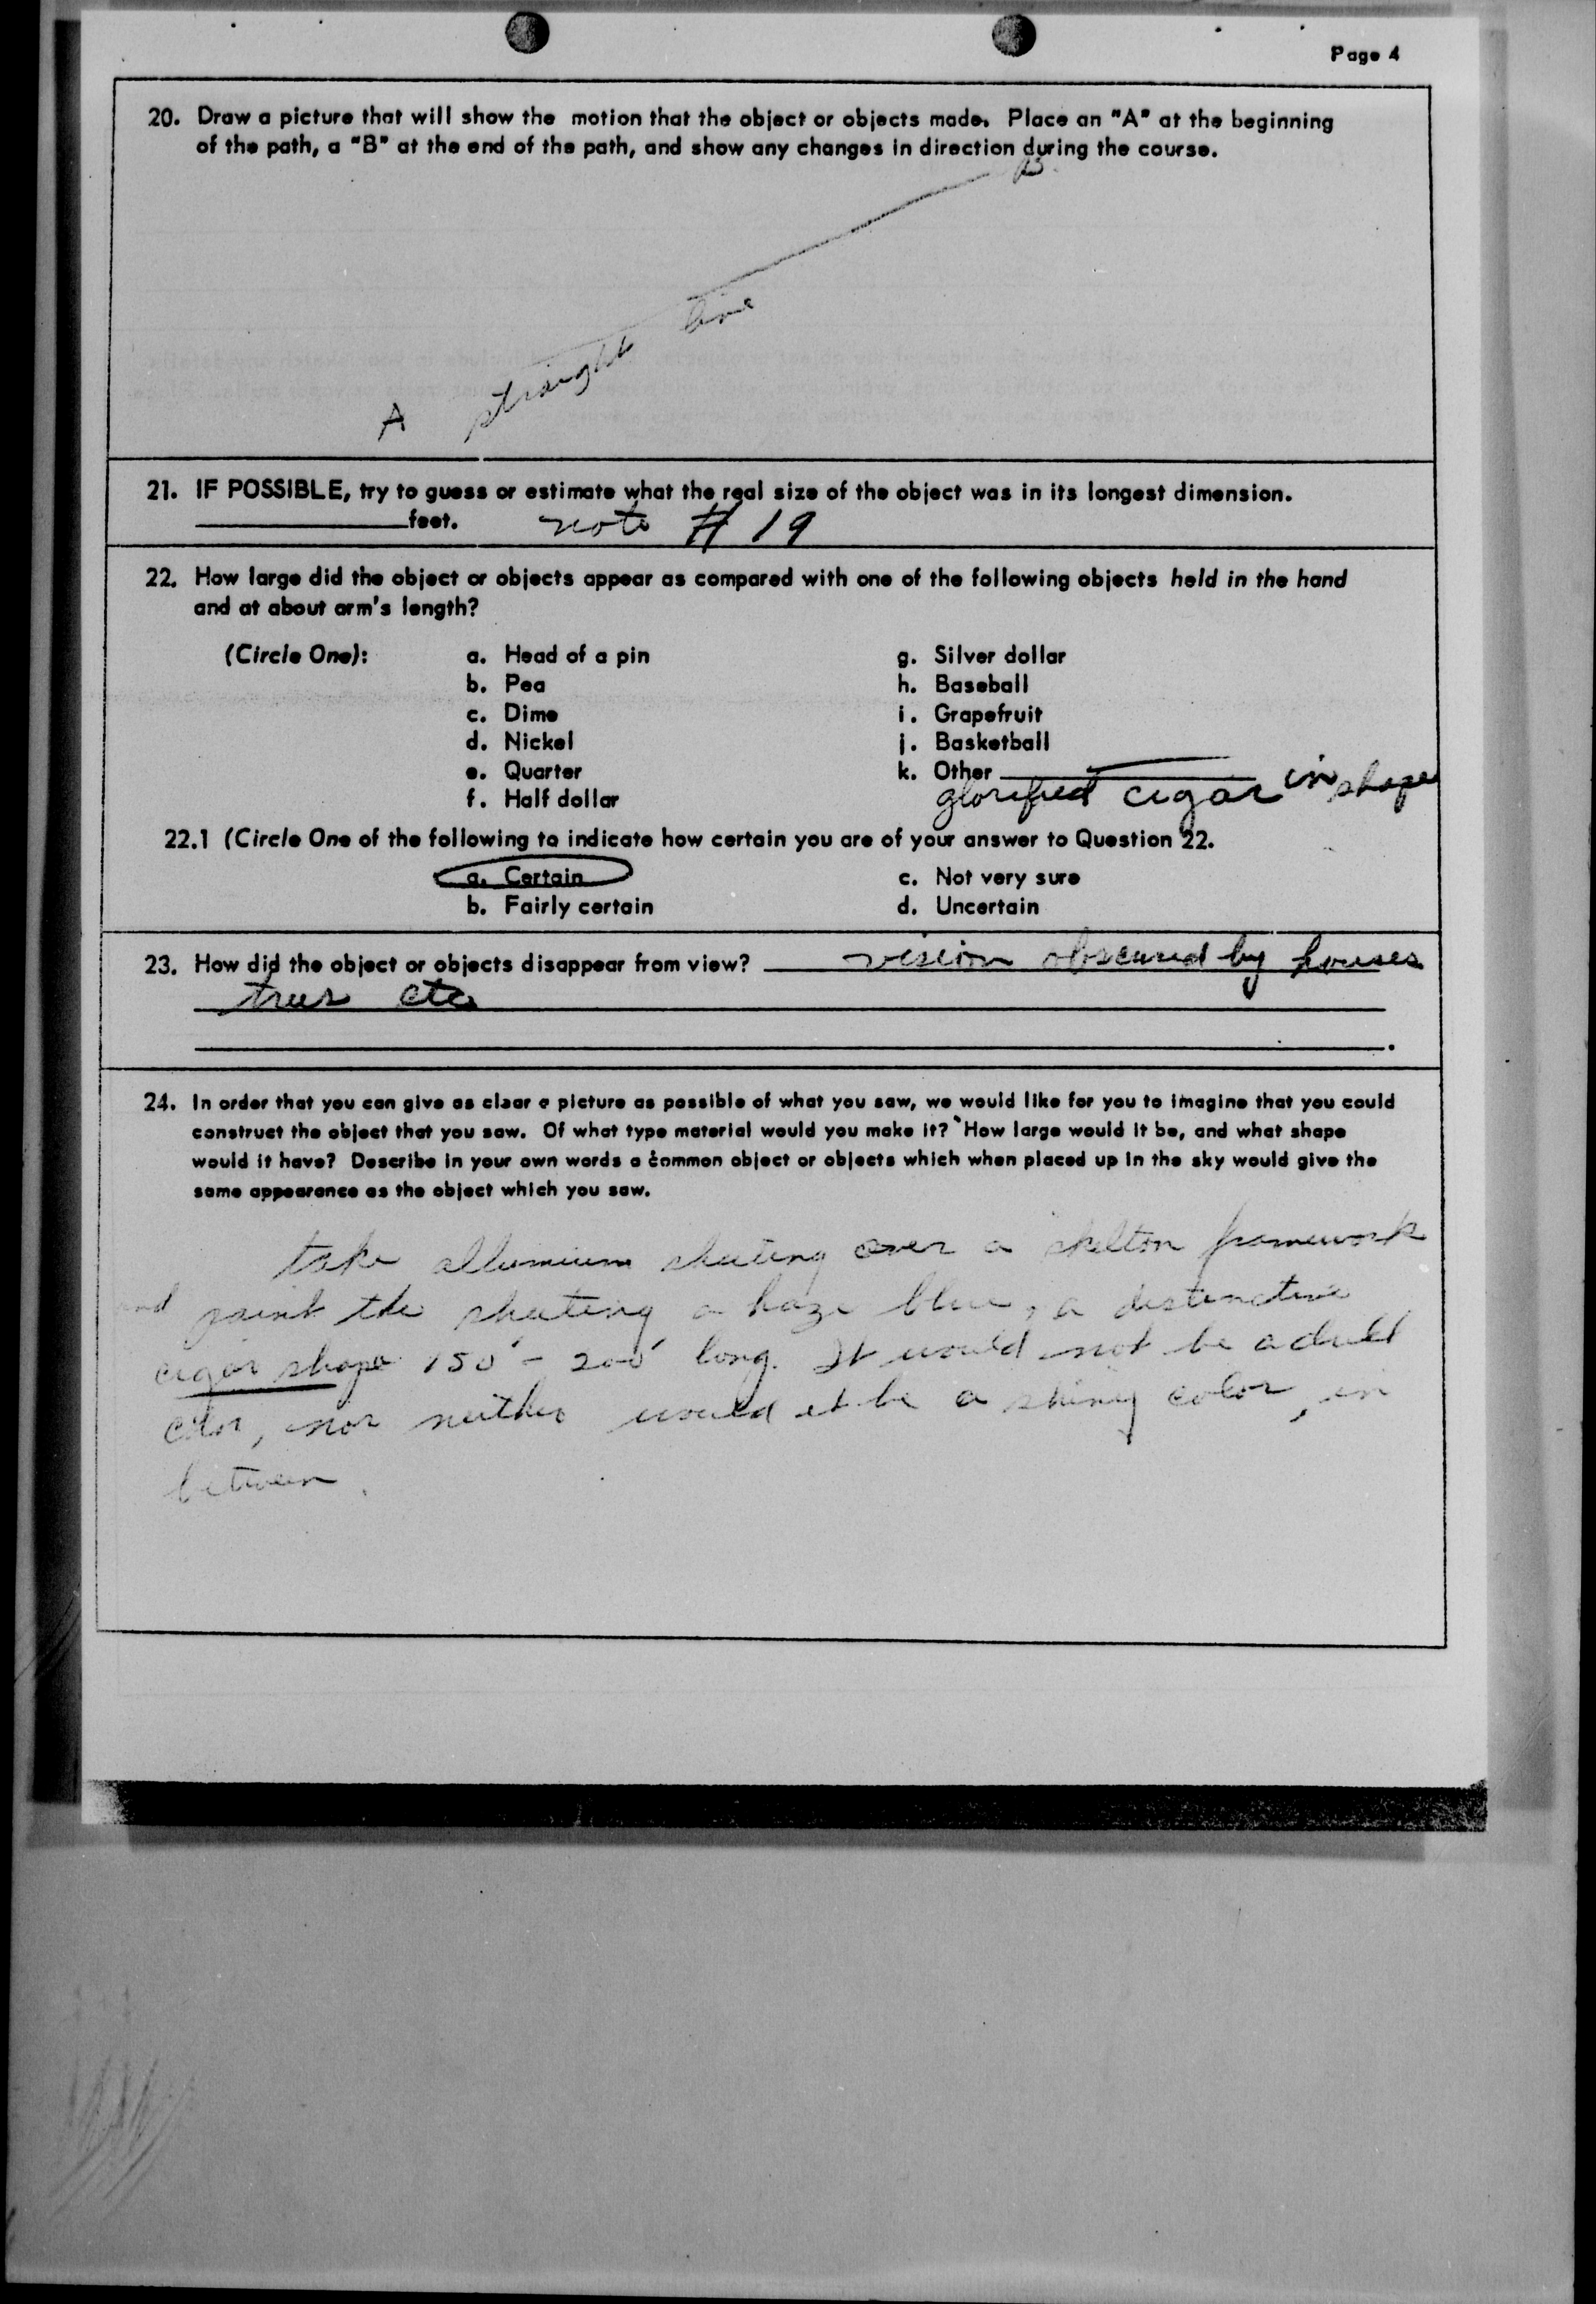 Page 4
20. Draw a picture that will show the motion that the object or objects made. Place an "A" at the beginning
of the path, a "B" at the end of the path, and show any changes in direction during the course.
B
straight line
A
21. IF POSSIBLE, try to guess or estimate what the real size of the object was in its longest dimension.
feet. note # 19
22. How large did the object or objects appear as compared with one of the following objects held in the hand
and at about arm's length?
(Circle One): a. Head of a pin g. Silver dollar
b. Pea h. Baseball
c. Dime i. Grapefruit
d. Nickel j. Basketball
e. Quarter k. Other
f. Half dollar glorified cigar in shape
22.1 (Circle One of the following to indicate how certain you are of your answer to Question 22.
a. Certain c. Not very sure
b. Fairly certain d. Uncertain
23. How did the object or objects disappear from view? vision obscured by houses
trees etc
24. In order that you can give as clear a picture as possible of what you saw, we would like for you to imagine that you could
construct the object that you saw. Of what type material would you make it? How large would it be, and what shape
would it have? Describe in your own words a common object or objects which when placed up in the sky would give the
same appearance as the object which you saw.
take allumium sheeting over a skelton framework
and paint the sheeting a haze blue, a distinctive
cigar shape 150' - 200' long. It would not be a dull
color, nor neither would it be a shiny color, in
between.